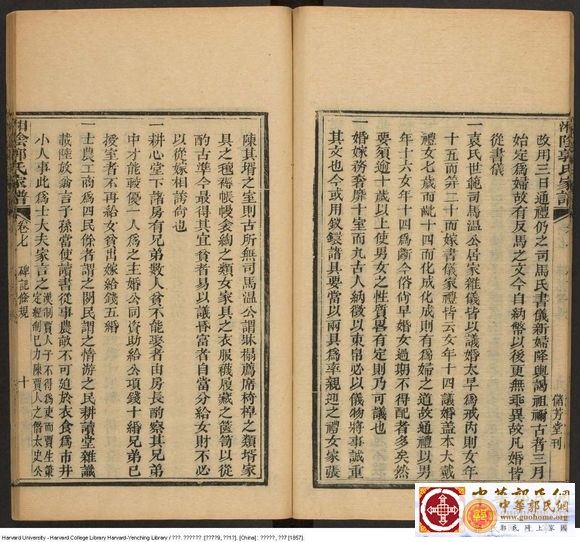 改用三日通禮仍之司馬氏書儀新婦降輿謁祖禰古者三月
始定為婦故有反馬之文今自納幣以後更無乖異故凡婚皆
從書儀
一袁氏世範司馬溫公居家雜儀皆以議婚太早為戒內則女年
十五而笄二十而嫁書儀家禮皆云女年十四議婚蓋本大戴
禮女七歲而齔十四而化成化成則有為婦之道故通禮以男
年十六女年十四為斷今俗尚早婚女過期不得配者多矣然
要須逾十歲以上使男女之性質畧有定則乃可議也
一婚嫁務奢靡十室而九古人納徵以束帛必以儀物將事誠重
其文也今或用釵鐶諸具要當以兩具為率親迎之禮女家張
儲芳堂刊
陳其壻之室則古所無司馬溫公謂牀榻薦席椅棹之類壻家
具之氊褥帳幔衾綯之類女家具之衣服襪履藏之篋笥以從
酌古準今最得其宜貧者易以議昏富者自當分給女財不必
以從嫁相誇尚也
一耕心堂下諸房有兄弟數人貧不能娶者由房長酌察其兄弟
中才能較優一人為之主婚公同資助給公項錢十緡兄弟已
授室者不再給女貧出嫁給錢五緡
一士農工商為四民餘者謂之閒民謂之惰游之民耕讀堂雜識
載陸放翁言子孫當使讀書從事農畝不可廹於衣食為市井
小人事此為士大夫家言之漢制賈人子不得為吏而賈生董
定經制已力陳賈人之僭太史公
湘陰郭氏家譜
卷七
碑記條規
十
Harvard University - Harvard College Library Harvard-Yenching Library / ???. ??????. [????9, ??1?]. [China] : ?????, ??7 [1857].
中華郭氏網
郭氏网上家園